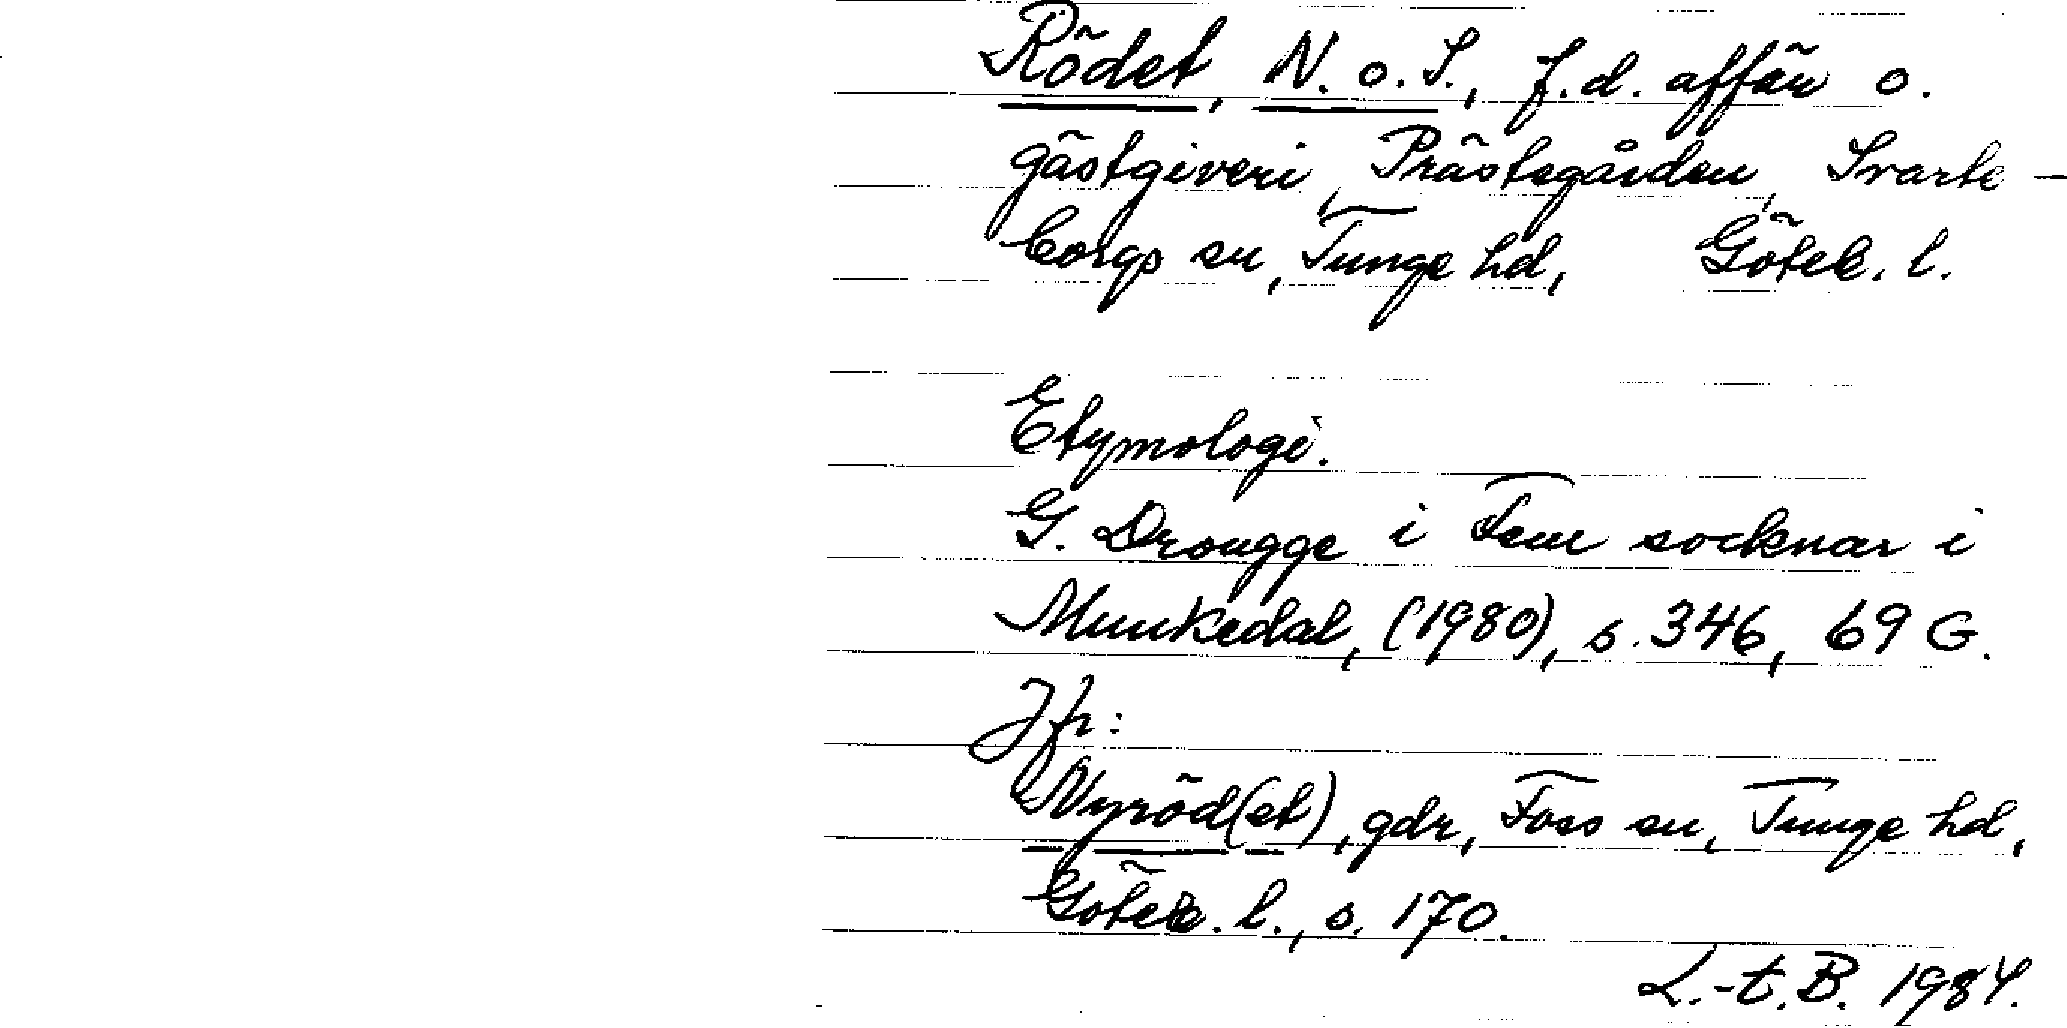 Rödet, N. o. S., f.d. affär o.
gästgiveri, Prästegården, Svarte-
borgs sn, Tunge hd, Göteb. l.
Etymologi.
G. Drougge i Fem socknar i
Munkedal, (1980), s. 346, 69 G.
Jfr:
Nyröd(et), gdr, Foss sn, Tunge hd,
Göteb. l., s. 170.
L.-t. B. 1984.